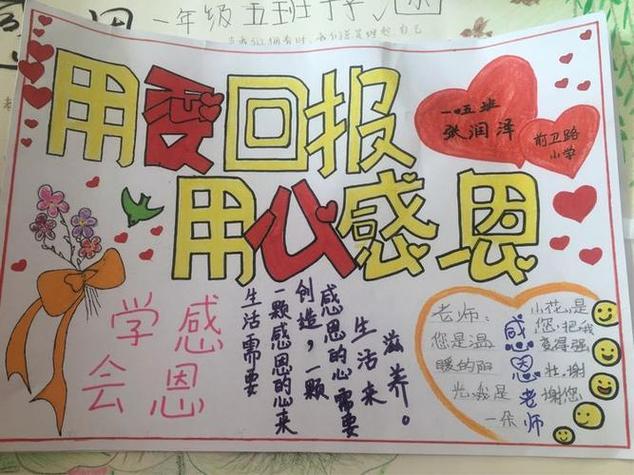 一年级五班
用爱回报
用心感恩
一五班
张润泽
前卫路
小学
学会
感恩
生活需要
一颗感恩的心来
创造，一颗
感恩的心需要
生活来
滋养。
老师：
您是温
暖的阳
光，我是
一朵
小花，是
您把我
变得强
壮，谢
谢您
感恩老师